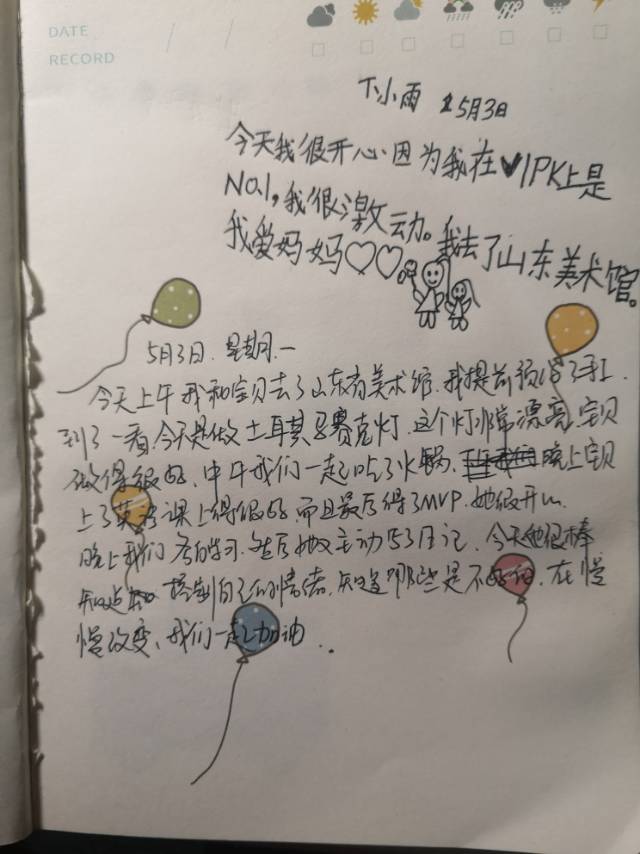 DATE
RECORD
下小雨 5月3日
今天我很开心因为我在VIPK上是
NO.1,我很激动。
我爱妈妈♡♡。我去了山东美术馆。
5月3日.星期一
今天上午我和宝贝去了山东省美术馆.我提前预约了手工.
到了一看,今天是做土耳其马赛克灯.这个灯非常漂亮,宝贝
做得很好.中午我们一起吃了火锅.晚上宝贝
上了英语课上得很好.而且最后得了MVP.她很开心
晚上我们各自学习.然后她又主动写了日记.今天她很棒
知道控制自己的情绪.知道哪些是不好的.在慢
慢改变、我们一起加油..